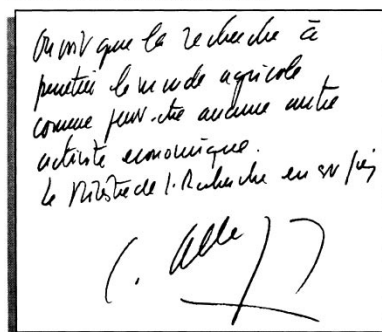 On voit que la recherche à
penetrer le monde agricole
comme peut-être aucune autre
activité economique.
Le Ministre de l. Recherche en
C. Alle